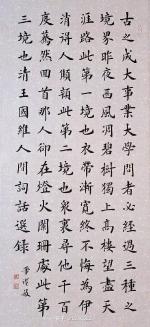 古之成大事業大學問者必經過三種之
境界昨夜西風凋碧樹獨上高樓望盡天
涯路此第一境也衣帶漸寬終不悔為伊
消得人顦顇此第二境也衆裏尋他千百
度驀然回首那人卻在燈火闌珊處此第
三境也清王國維人間詞話選錄